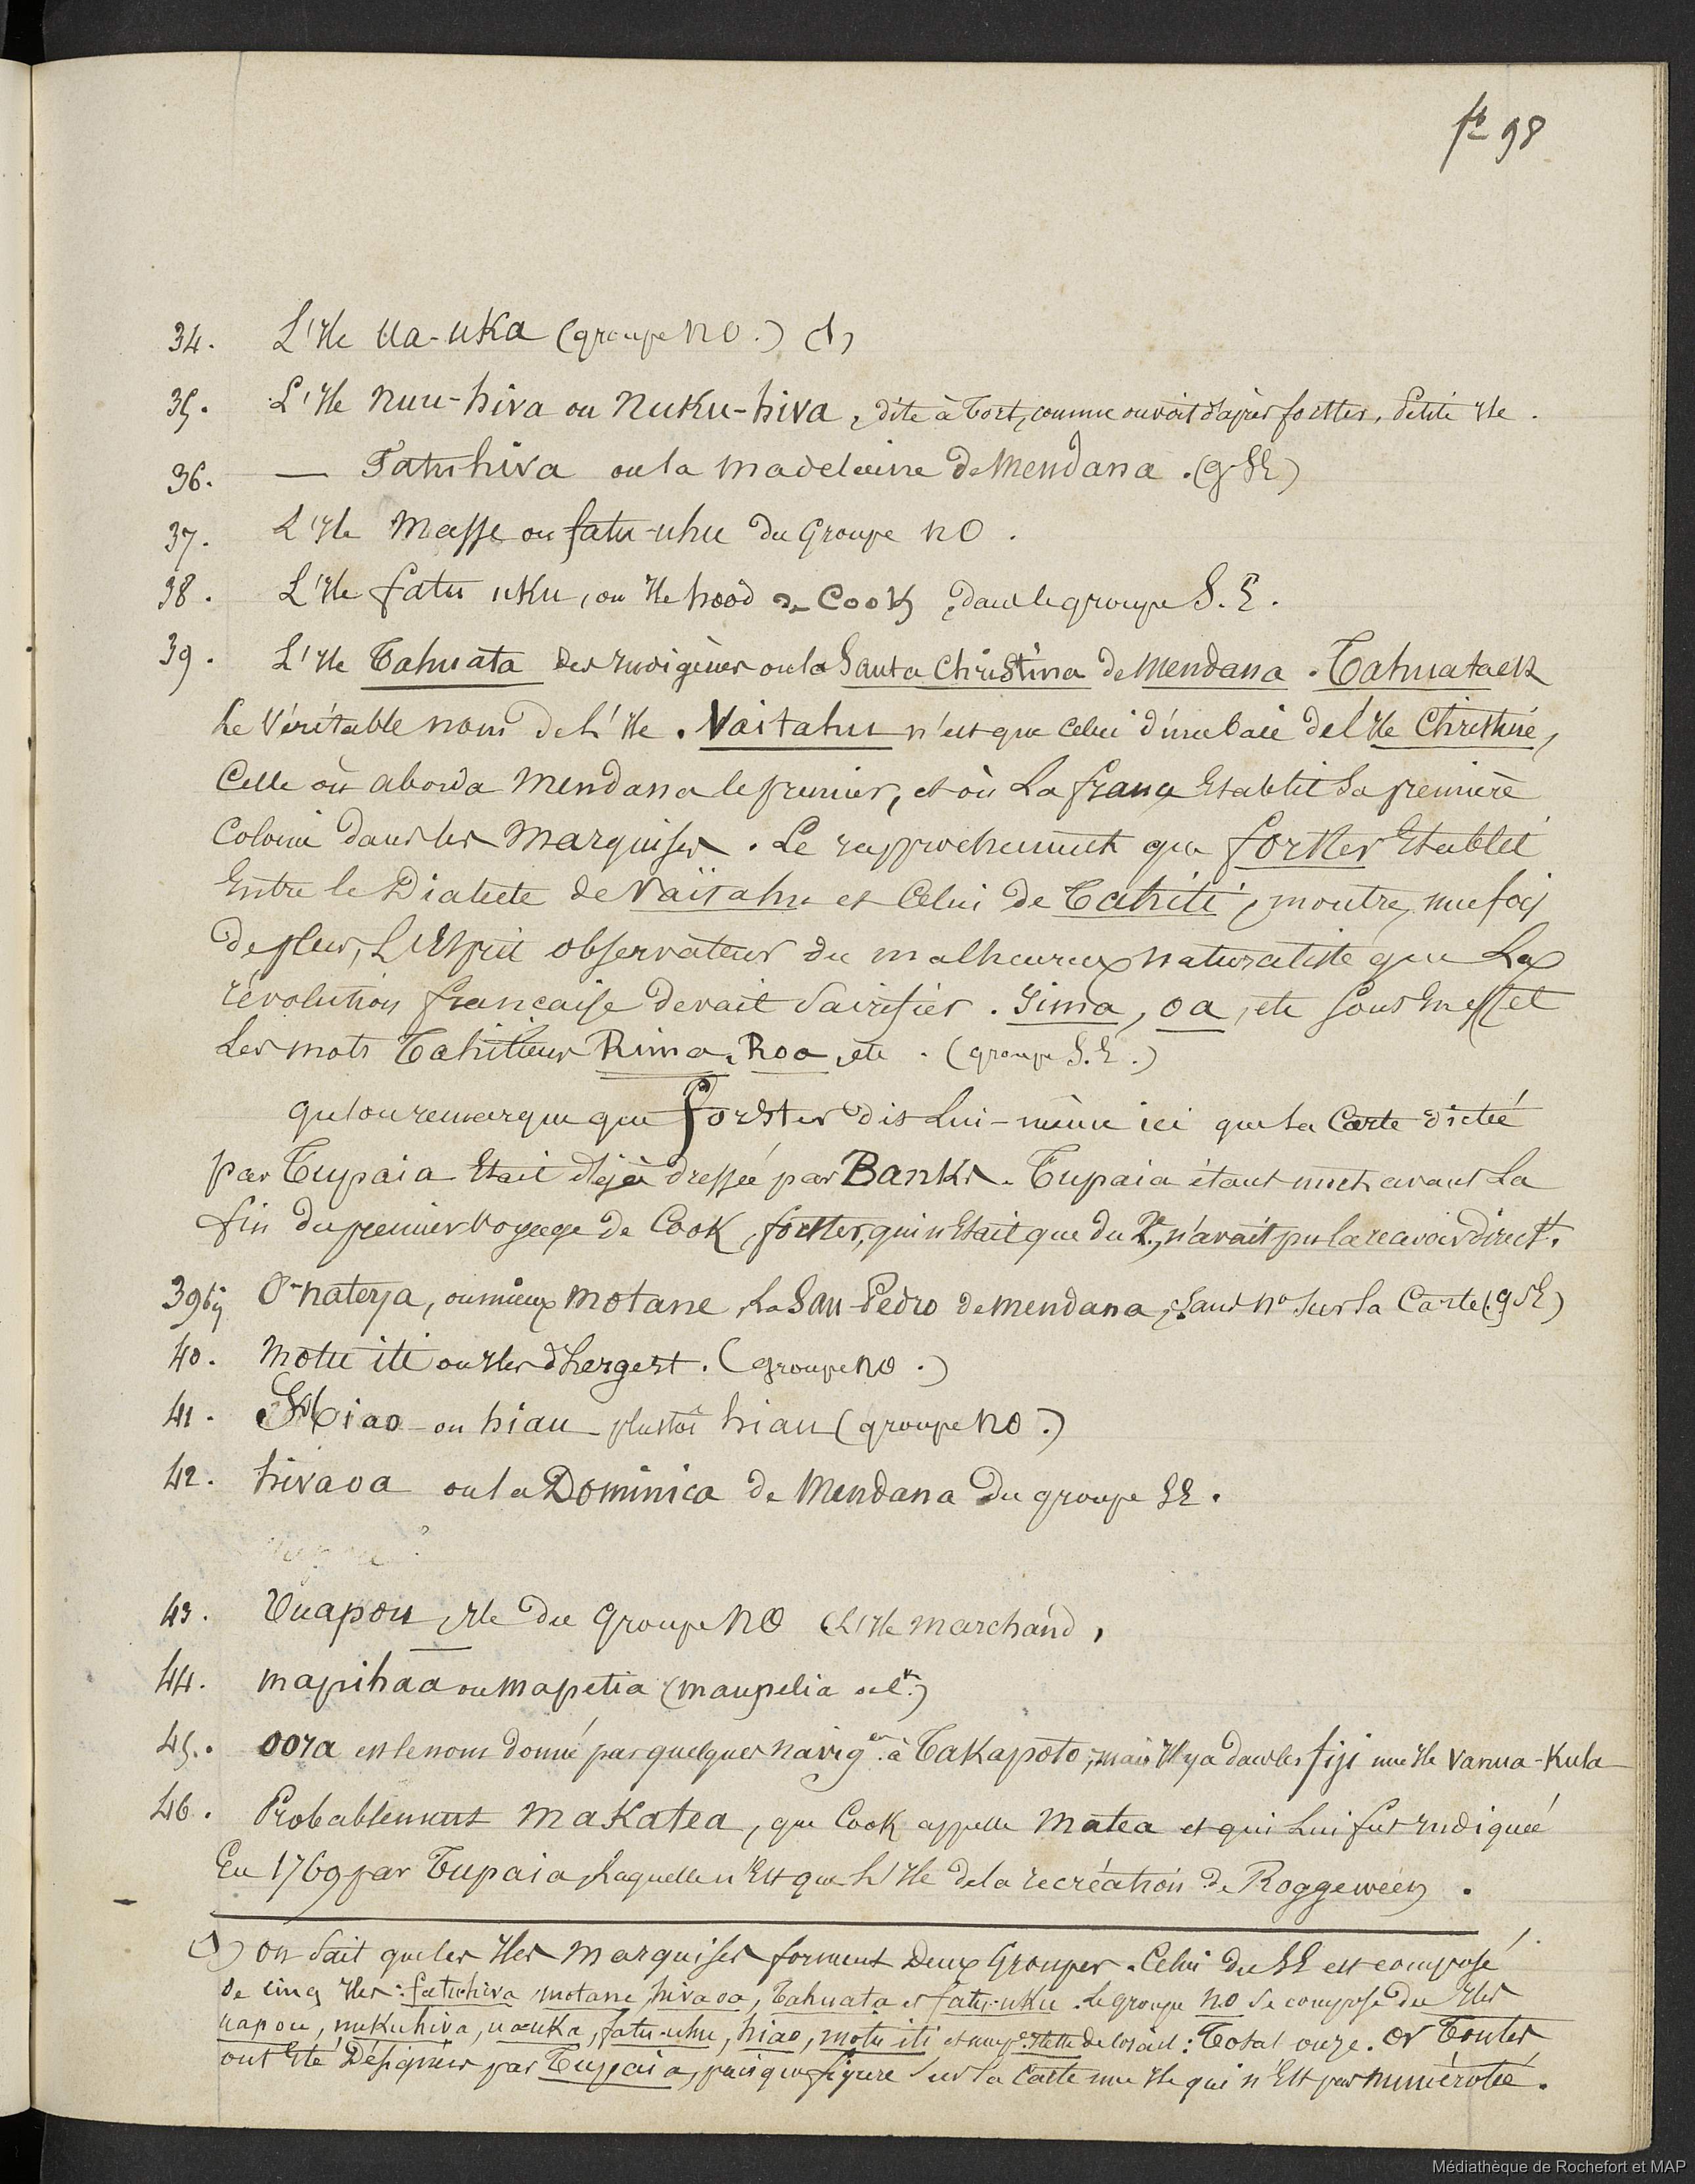 fo 98
34. L'ile Ua-uKa (groupe NO.) (1)
35. L'ile Nuu-hiva ou NuKu-hiva, dite à tort, comme on voit d'après forster, Petite ile.
36. — Fatuhiva ou la madeleine de Mendana. (g. SE)
37. L'ile Masse ou fatu-uhu du Groupe NO.
38. L'ile fatu uKu, ou ile hood de CooK, dans le groupe S.E.
39. L'ile Tahuata des indigènes ou la Santa Christina de Mendana. Tahuata est
le Véritable nom de l'ile. Vaitahu n'est que celui d'une baie de l'ile Christine,
Celle où aborda Mendana le premier, et où La france Etablit sa première
Colonie dans les Marquises. Le rapprochement que forster Etablit
Entre le Dialecte de Vaïtahu et Celui de Tahiti, montre, une fois
de plus, L'Esprit observateur du malheureux naturaliste que La
révolution française devait sacrifier. Iima, oa, etc sont En effet
Les mots Tahitiens Rima, Roa, etc. (groupe S.E.)
que l'on remarque que forster dit Lui-même ici que la Carte dictée
par Tupaia Etait déjà dressée par Banks. Tupaia étant mort avant La
fin du premier voyage de Cook, forster, qui n'Etait que du 2e, n'avait pu la recevoir directt.
39bis O-nateya, ou mieux Motane, La San-Pedro de mendana, Sans no sur la Carte (g SE)
40. Motu iti ou iles d'hergest. (groupe NO.)
41. Hiao ou hiau plustôt hiau (groupe NO.)
42. hivaoa ou la Dominica de Mendana du groupe SE.
43. Uuapou, ile du Groupe NO (L'ile marchand)
44. mapihaa ou mapetia (maupelia
45. oora est le nom donné par quelques navigrs à TaKapoto, mais il y a dans les fiji une ile Vanua-Kula
46. Probablement MaKatea, que CooK appelle Matea et qui Lui fut indiquée
En 1769 par Tupaia, Laquelle n'Est que L'ile de la recréation de Roggeween.
(1) on sait que les iles Marquises forment Deux Groupes. Celui du SE est composé
de cinq iles: fatuhiva, motane, hivaoa, Tahuata et fatu-uku. Le groupe NO se compose des iles
uapou, nukuhiva, uauka, fatu-uhu, hiao, motu iti et une pte ilette de corail: Total onze. Or Toutes
ont Eté Désignées par Tupaia, puis que figure sur la Carte une ile qui n'Est pas numérotée.
Médiathèque de Rochefort et MAP